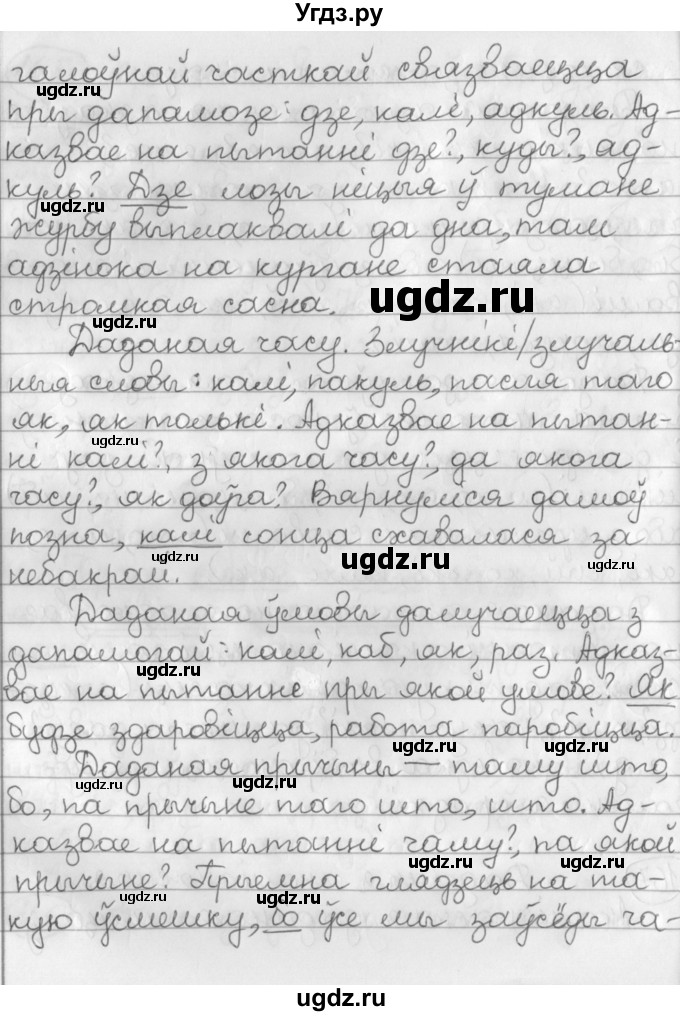 Угдз.ру
галоўнай часткай связваецца
ugdz.ru
пры дапамозе: дзе, калі, адкуль. Ад-
ugdz.ru
казвае на пытанні дзе?, куды?, ад-
куль? Дзе лозы ніцыя ў тумане
ugdz.ru
журбу выплаквалі да дна, там
адзінока на кургане стаяла
стромкая сасна.
ugdz.ru
ugdz.ru
Даданая часу. Злучнікі/злучаль-
ныя словы: калі, пакуль, пасля таго
як, як толькі. Адказвае на пытан-
ugdz.ru
ні калі?, з якога часу?, да якога
часу?, як доўга? Вярнуліся дамоў
позна, калі сонца схавалася за
ugdz.ru
ugdz.ru
небакрай.
Даданая ўмовы далучаецца з
дапамогай: калі, каб, як, раз. Адказ-
ugdz.ru
вае на пытанне пры якой умове? Як
будзе здаровіцца, работа паробіцца.
ugdz.ru
Даданая прычыны – таму што,
ugdz.ru
ugdz.ru
бо, па прычыне таго што, што. Ад-
казвае на пытанні чаму?, па якой
ugdz.ru
прычыне? Прыемна глядзець на та-
кую ўсмешку, бо ўсе мы заўсёды ча-
ugdz.ru
ugdz.ru
ugdz.ru